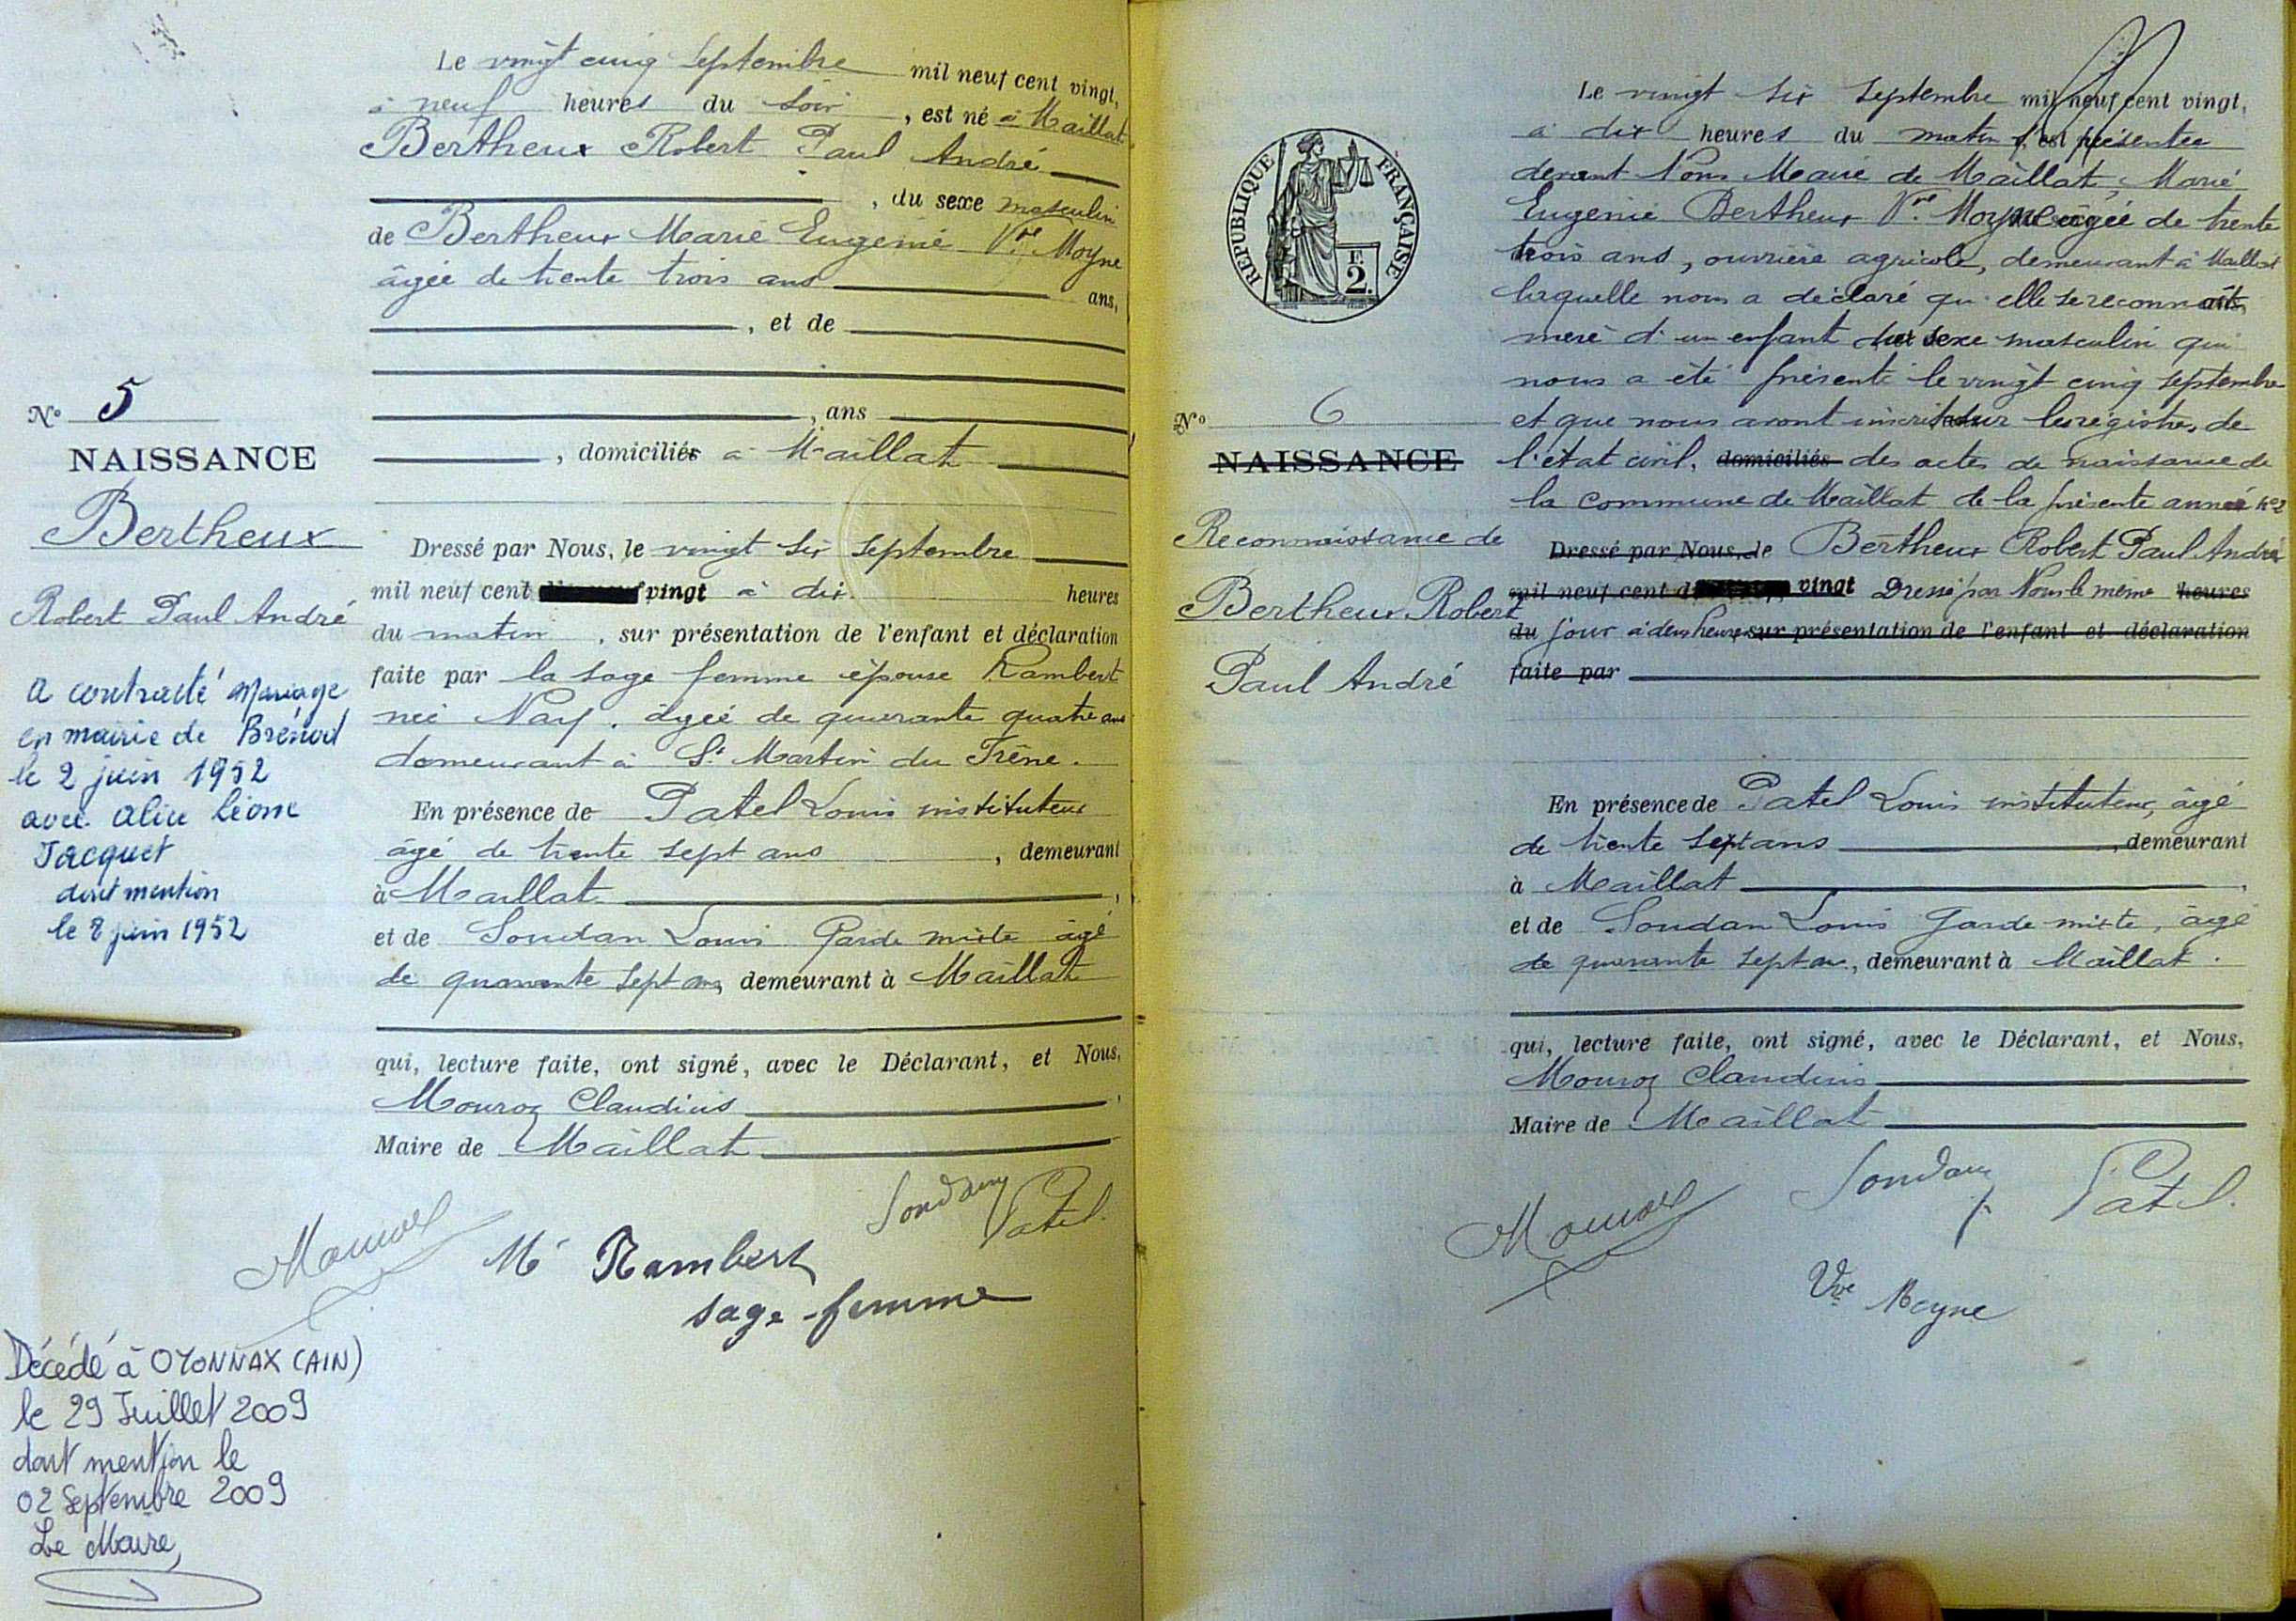 Le vingt cinq Septembre mil neuf cent vingt,
à neuf heures du soir, est né à Maillat
Bertheux Robert Paul André
, du sexe masculin
de Bertheux Marie Eugénie Vve Moyne
âgée de trente trois ans ans,
, et de
, ans
, domiciliés à Maillat
N° 5
NAISSANCE
Bertheux
Robert Paul André
Dressé par Nous, le vingt six Septembre
mil neuf cent vingt à dix heures
du matin, sur présentation de l'enfant et déclaration
faite par la sage femme épouse Rambert
née Nay, âgée de quarante quatre ans
demeurant à St Martin du Frêne.
En présence de Patel Louis instituteur
âgé de trente sept ans, demeurant
à Maillat,
et de Soudan Louis Garde mixte âgé
de quarante sept ans, demeurant à Maillat
qui, lecture faite, ont signé, avec le Déclarant, et Nous,
Mouroz Claudius,
Maire de Maillat
Mouroz
Soudan
Patel
Me Rambert
sage-femme
a contracté mariage
en mairie de Brénod
le 2 juin 1952
avec Alice Léone
Jacquet
dont mention
le 8 juin 1952
Décédé à OYONNAX (AIN)
le 29 Juillet 2009
dont mention le
02 Septembre 2009
Le Maire,
Le vingt six Septembre mil neuf cent vingt,
à dix heures du matin s'est présentée
devant Nous Maire de Maillat, Marie
Eugénie Bertheux Vve Moyne âgée de trente
trois ans, ouvrière agricole, demeurant à Maillat
laquelle nous a déclaré qu'elle se reconnaît
mère d'un enfant du sexe masculin qui
nous a été présenté le vingt cinq Septembre
et que nous avont inscrit sur les registres de
l'état civil, domiciliés des actes de naissance de
la commune de Maillat de la présente année
Dressé par Nous, le Bertheux Robert Paul André
mil neuf cent vingt Dressé par Nous le même heures
du jour à dix heures sur présentation de l'enfant et déclaration
faite par
RÉPUBLIQUE FRANÇAISE
2
N° 6
NAISSANCE
Reconnaissance de
Bertheux Robert
Paul André
En présence de Patel Louis instituteur, âgé
de trente sept ans, demeurant
à Maillat,
et de Soudan Louis Garde mixte, âgé
de quarante sept ans, demeurant à Maillat.
qui, lecture faite, ont signé, avec le Déclarant, et Nous,
Mouroz Claudius
Maire de Maillat
Mouroz
Soudan
Patel.
Vve Moyne